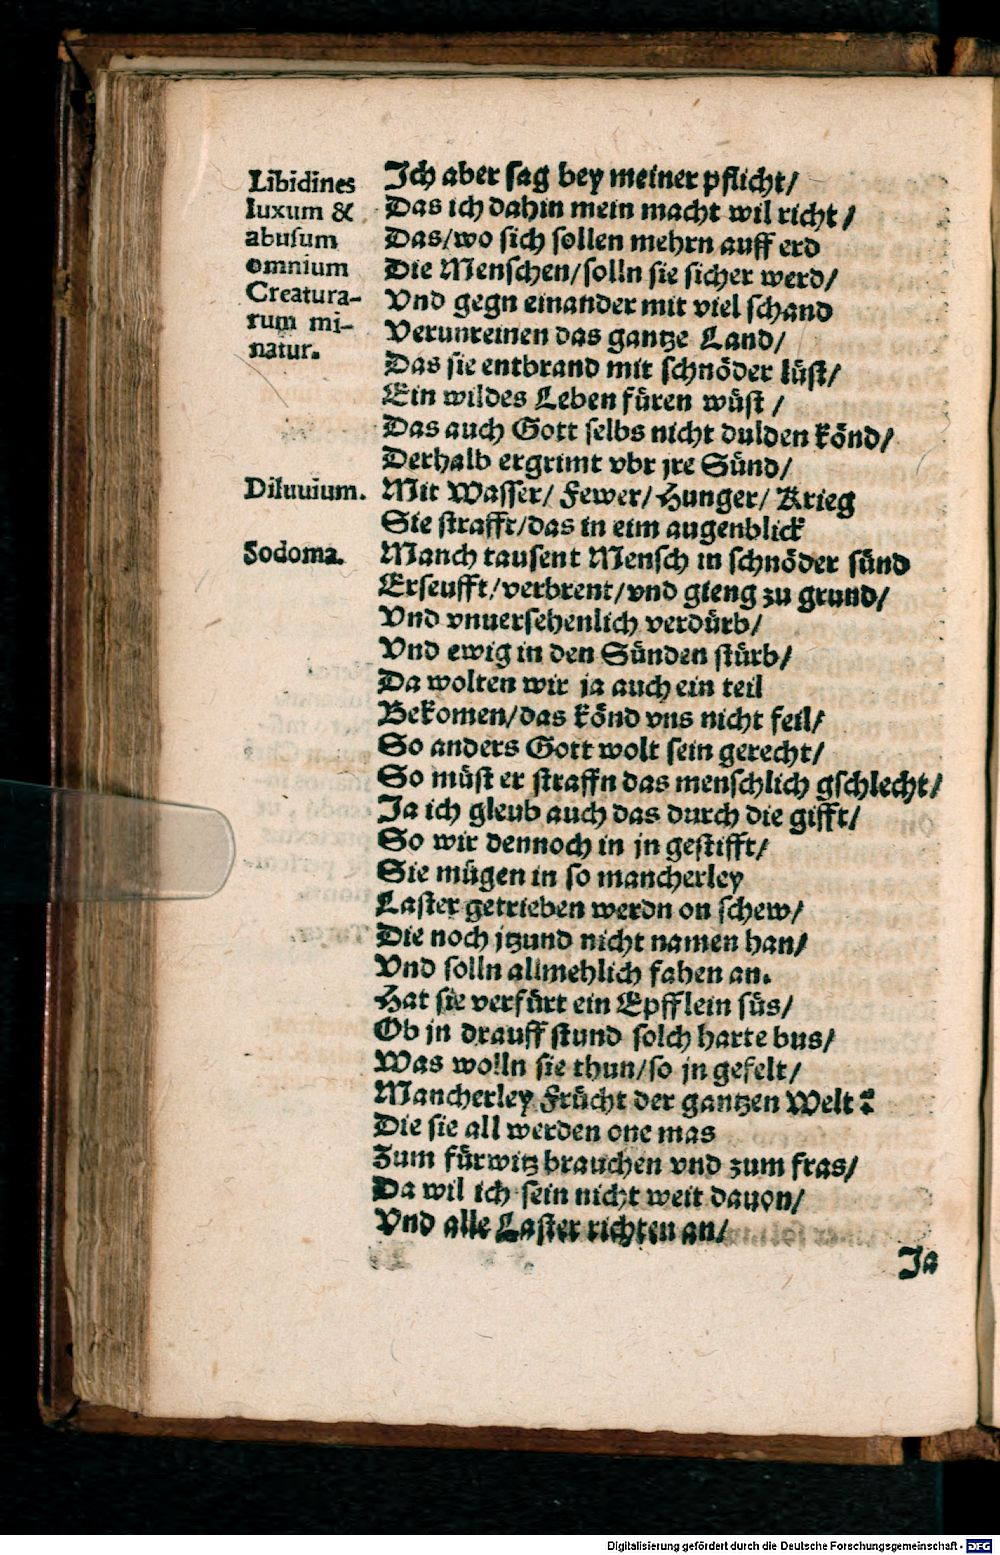 Libidines
luxum &
abusum
omnium
Creatura-
rum mi-
natur.
Ich aber sag bey meiner pflicht/
Das ich dahin mein macht wil richt/
Das/wo sich sollen mehrn auff erd
Die Menschen/solln sie sicher werd/
Vnd gegn einander mit viel schand
Verunreinen das gantze Land/
Das sie entbrand mit schnöder lüst/
Ein wildes Leben füren wüst/
Das auch Gott selbs nicht dulden könd/
Derhalb ergrimt vbr jre Sünd/
Diluuium.
Mit Wasser/ Fewer/ Hunger/ Krieg
Sie strafft/das in eim augenblick
Sodoma.
Manch tausent Mensch in schnöder sünd
Erseufft/verbrent/vnd gieng zu grund/
Vnd vnuersehenlich verdürb/
Vnd ewig in den Sünden stürb/
Da wolten wir ja auch ein teil
Bekomen/das könd vns nicht feil/
So anders Gott wolt sein gerecht/
So müst er straffn das menschlich gschlecht/
Ja ich gleub auch das durch die gifft/
So wir dennoch in jn gestifft/
Sie mügen in so mancherley
Laster getrieben werdn on schew/
Die noch jtzund nicht namen han/
Vnd solln allmehlich fahen an.
Hat sie verfürt ein Epfflein süs/
Ob jn drauff stund solch harte bus/
Was wolln sie thun/so jn gefelt/
Mancherley Frücht der gantzen Welt?
Die sie all werden one mas
Zum fürwitz brauchen vnd zum fras/
Da wil ich sein nicht weit dauon/
Vnd alle Laster richten an/
Ja
Digitalisierung gefördert durch die Deutsche Forschungsgemeinschaft - DFG